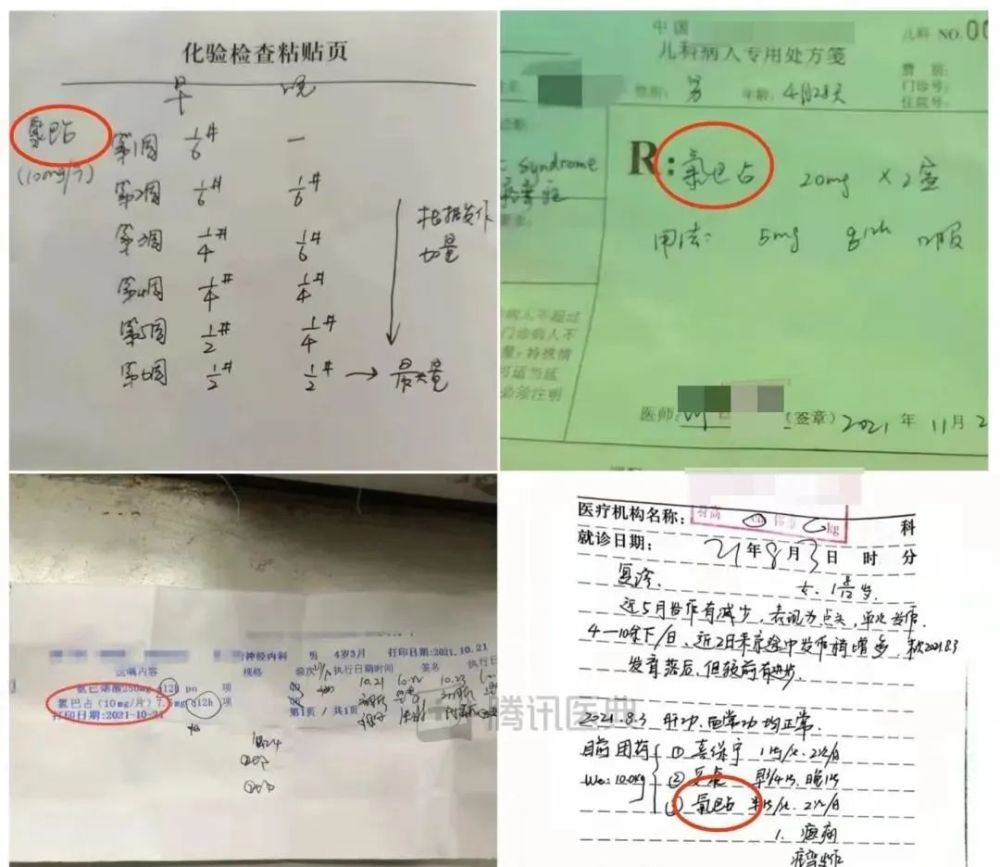 化验检查粘贴页
早 晚
氯巴占
(10mg/片)
第1周 1/6# —
第2周 1/6# 1/6#
第3周 1/4# 1/6#
第4周 1/4# 1/4#
第5周 1/2# 1/4#
第6周 1/2# 1/2# → 最大量
根据发作
加量
中国
儿科病人专用处方笺
儿科 NO.00
费别:
性别: 男 年龄: 4月28天
门诊号:
住院号:
syndrome
R: 氯巴占 20mg × 2盒
用法: 5mg q12h 口服
病人不超过
门诊病人不
量,特殊情
可适当延
必须注明
医师: (签章) 2021 年 11月 2
神经内科 男 4岁3月 打印日期:2021.10.21
医嘱内容 规格 频次 执行日期时间 签名 执行日期时间
10.21 10.22 10.23
250mg q12h po 项
氯巴占(10mg/片) 7.5mg q12h 项
打印日期:2021-10-21 第1页 / 共1页
腾讯医典
医疗机构名称: 科
身高 cm 体重 kg
就诊日期: 21 年 8 月 3 日 时 分
复诊. 女. 1 8/12 岁.
近5月发作有减少,表现为点头,单次发作.
4—10余下/日,近2日来京途中发作稍增多,末次2021.8.3
发育落后,但较前有进步.
2021.8.3 肝功,血常功均正常.
目前用药 ① 喜保宁 1片/次.2次/日
Wt:10.0kg ② 妥泰 早3/4片,晚1片
③ 氯巴占 半片/次.2次/日
1. 癫痫